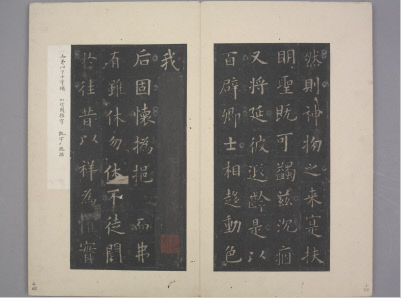 然則神物之来寔扶
明聖既可蠲茲沉痼
又將延彼遐齡是以
百辟卿士相趍動色
我
后固懷撝挹而弗
有雖休勿休不徒聞
於往昔以祥為懼實